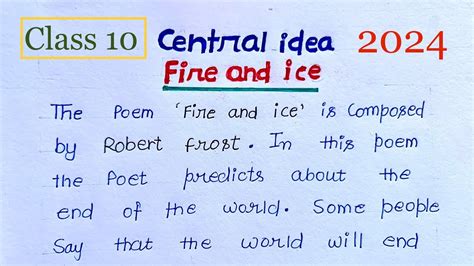 Class 10 Central idea 2024
Fire and ice
The Poem 'Fire and ice' is Composed
by Robert frost. In this poem
the Poet predicts about the
end of the world. Some people
Say that the world will end